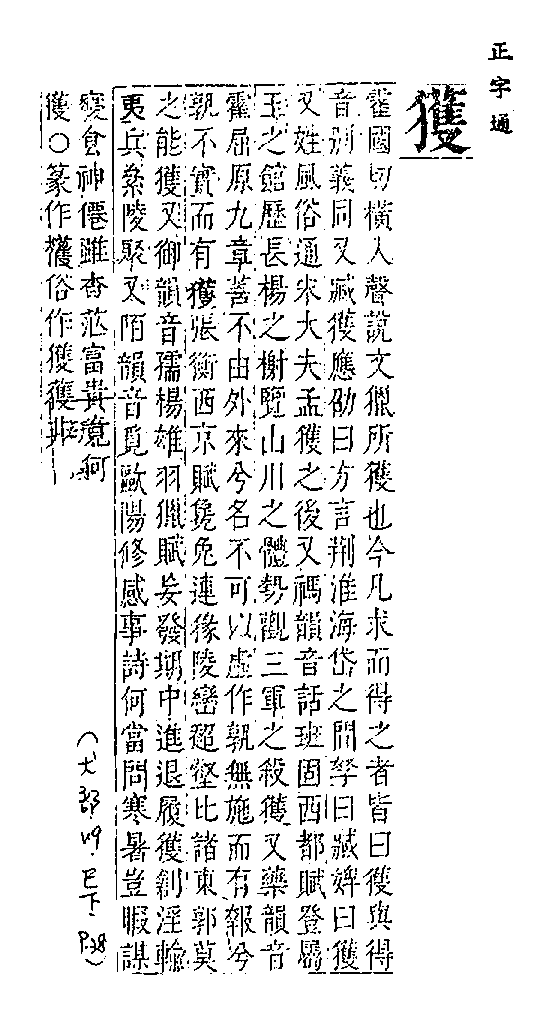 正字通
獲
霍國切橫入聲說文獵所獲也今凡求而得之者皆曰獲與得
音別義同又臧獲應劭曰方言荆淮海岱之間孥曰臧婢曰獲
又姓風俗通宋大夫孟獲之後又禡韻音話班固西都賦登屬
玉之館歷長楊之榭覽山川之體勢觀三軍之殺獲又藥韻音
霍屈原九章善不由外來兮名不可以虛作孰無施而有報兮
孰不實而有獲張衡西京賦㕙兔連猭陵巒超壑比諸東郭莫
之能獲又御韻音孺楊雄羽獵賦妄發期中進退履獲創淫輪
夷兵絫陵聚又陌韻音覓歐陽修感事詩何當問寒暑豈暇謀
寢食神僊雖杳茫富貴竟何
獲〇篆作獲俗作獲獲非
(犬部 49 巳下 P.38)